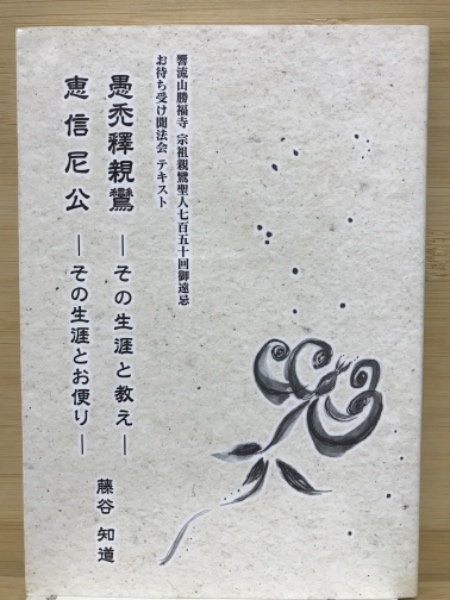 響流山勝福寺 宗祖親鸞聖人七百五十回御遠忌
お待ち受け聞法会 テキスト
愚禿釋親鸞 ―その生涯と教え―
恵信尼公 ―その生涯とお便り―
藤谷 知道